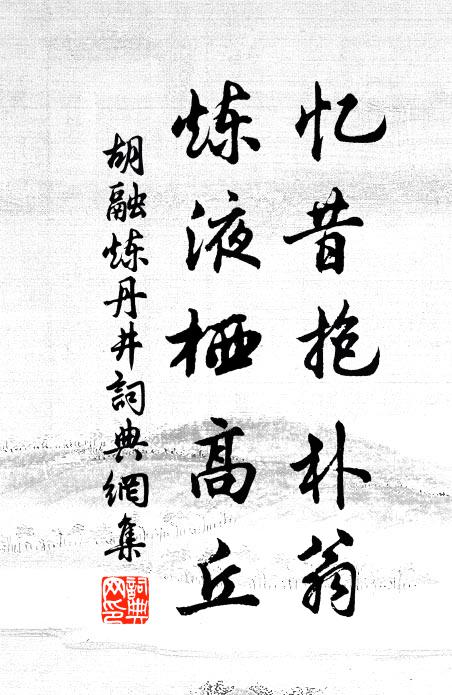 忆昔抱朴翁
炼液栖高丘
胡融炼丹井詞典網集
詞典
网印